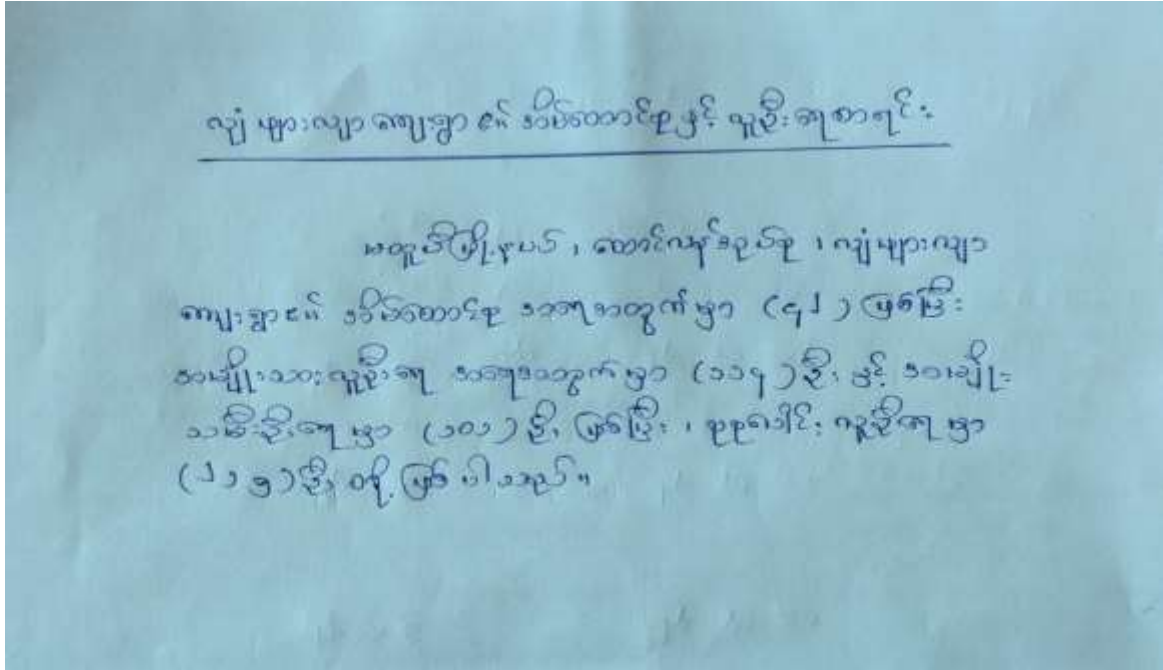 လျှံများလျာ ကျေးရွာ ၏ အိမ်ထောင်စု နှင့် လူဦးရေစာရင်း
မတူပီမြို့နယ် ၊ ထောင်လန်ဒုည်စု ၊ လျှံများလျာ
ကျေးရွာ ၏ အိမ်ထောင်စု အရေအတွက် မှာ (၄၂) ဖြစ်ပြီး
အမျိုးသား လူဦးရေ အရေအတွက် မှာ (၁၁၄) ဦး နှင့် အမျိုး
သမီးဦးရေ မှာ (၁၀၁) ဦး ဖြစ်ပြီး ၊ စုစုပေါင်း လူဦးရေ မှာ
(၂၁၅) ဦး တို့ ဖြစ် ပါ သည် ။